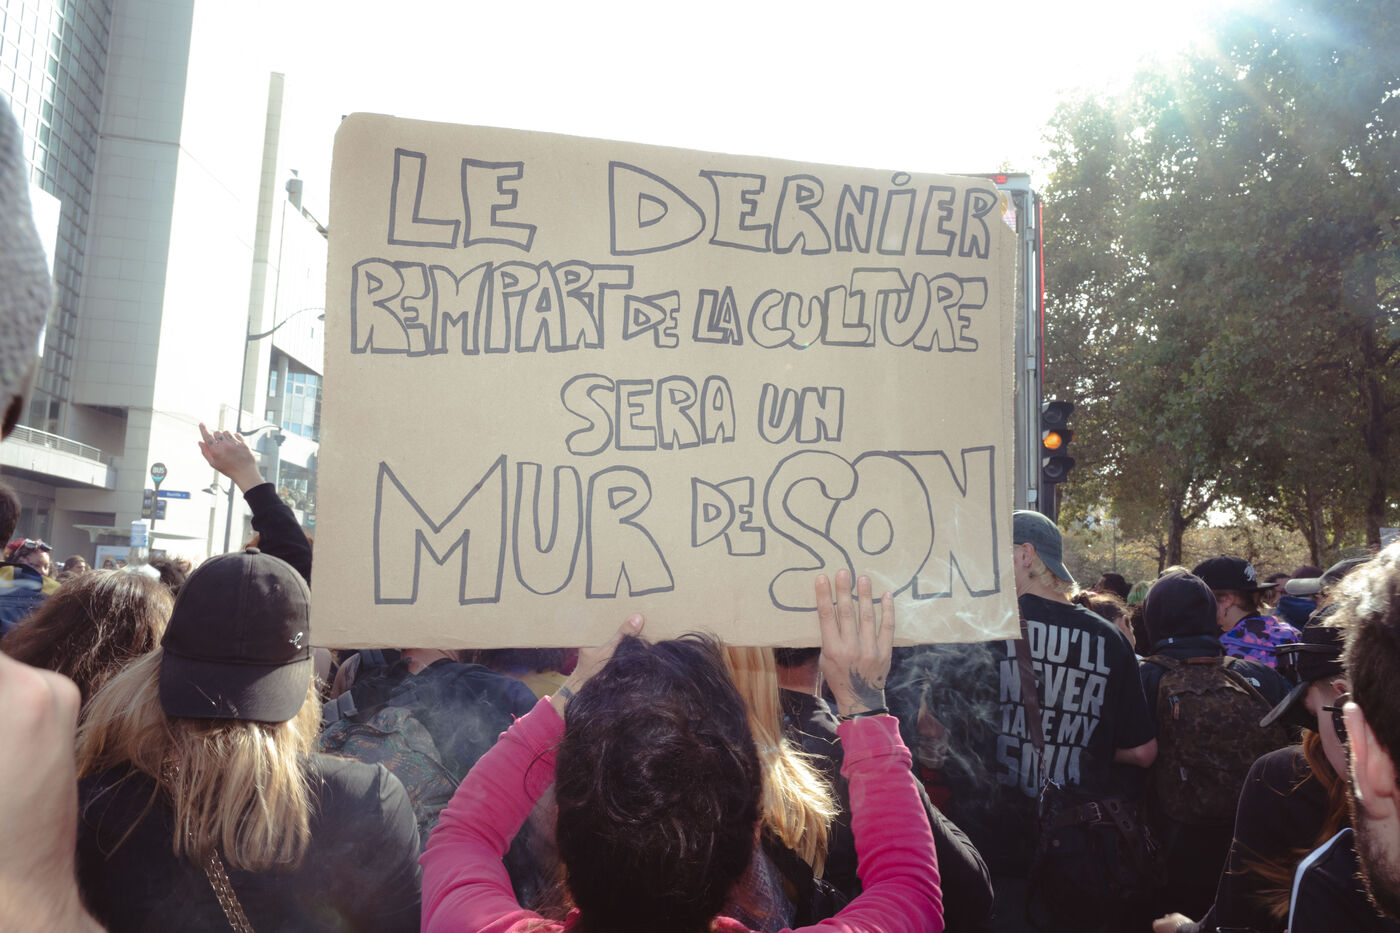 LE DERNiER
REMPART DE LA CULTURE
SERA UN
MUR DE SON
YOU'LL
NEVER
TAKE MY
SOUL
BUS